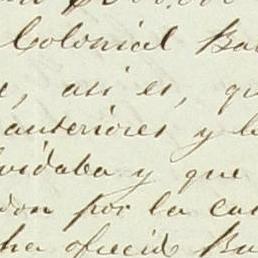 000.000
Colonial Ba
, asi es, qu
anteriores y l
vidaba y que
don por la ca
ha ofrecido Ba